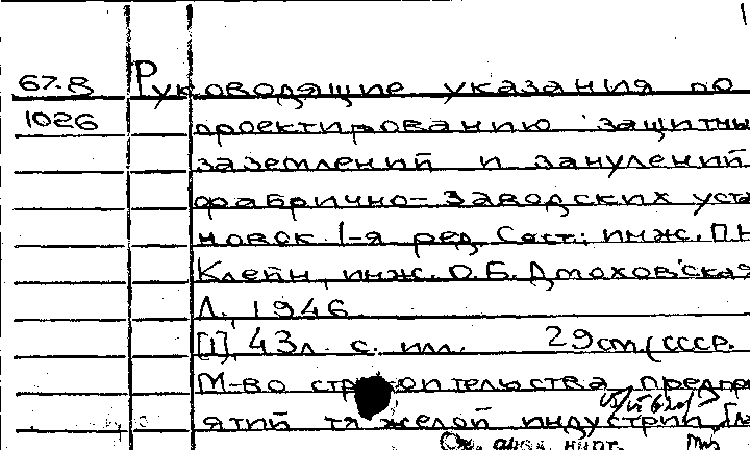 67.8 Руководящие указания по
1026 проектированию защитны
заземлений и занулений
фабрично-заводских уста
новок. 1-я ред. Сост.: инж. П.Н.
Клейн, инж. О.Б. Дмоховская
Л., 1946.
[1], 43л. с. илл. 29см. (СССР.
М-во строительства предпри
ятий тяжелой индустрии